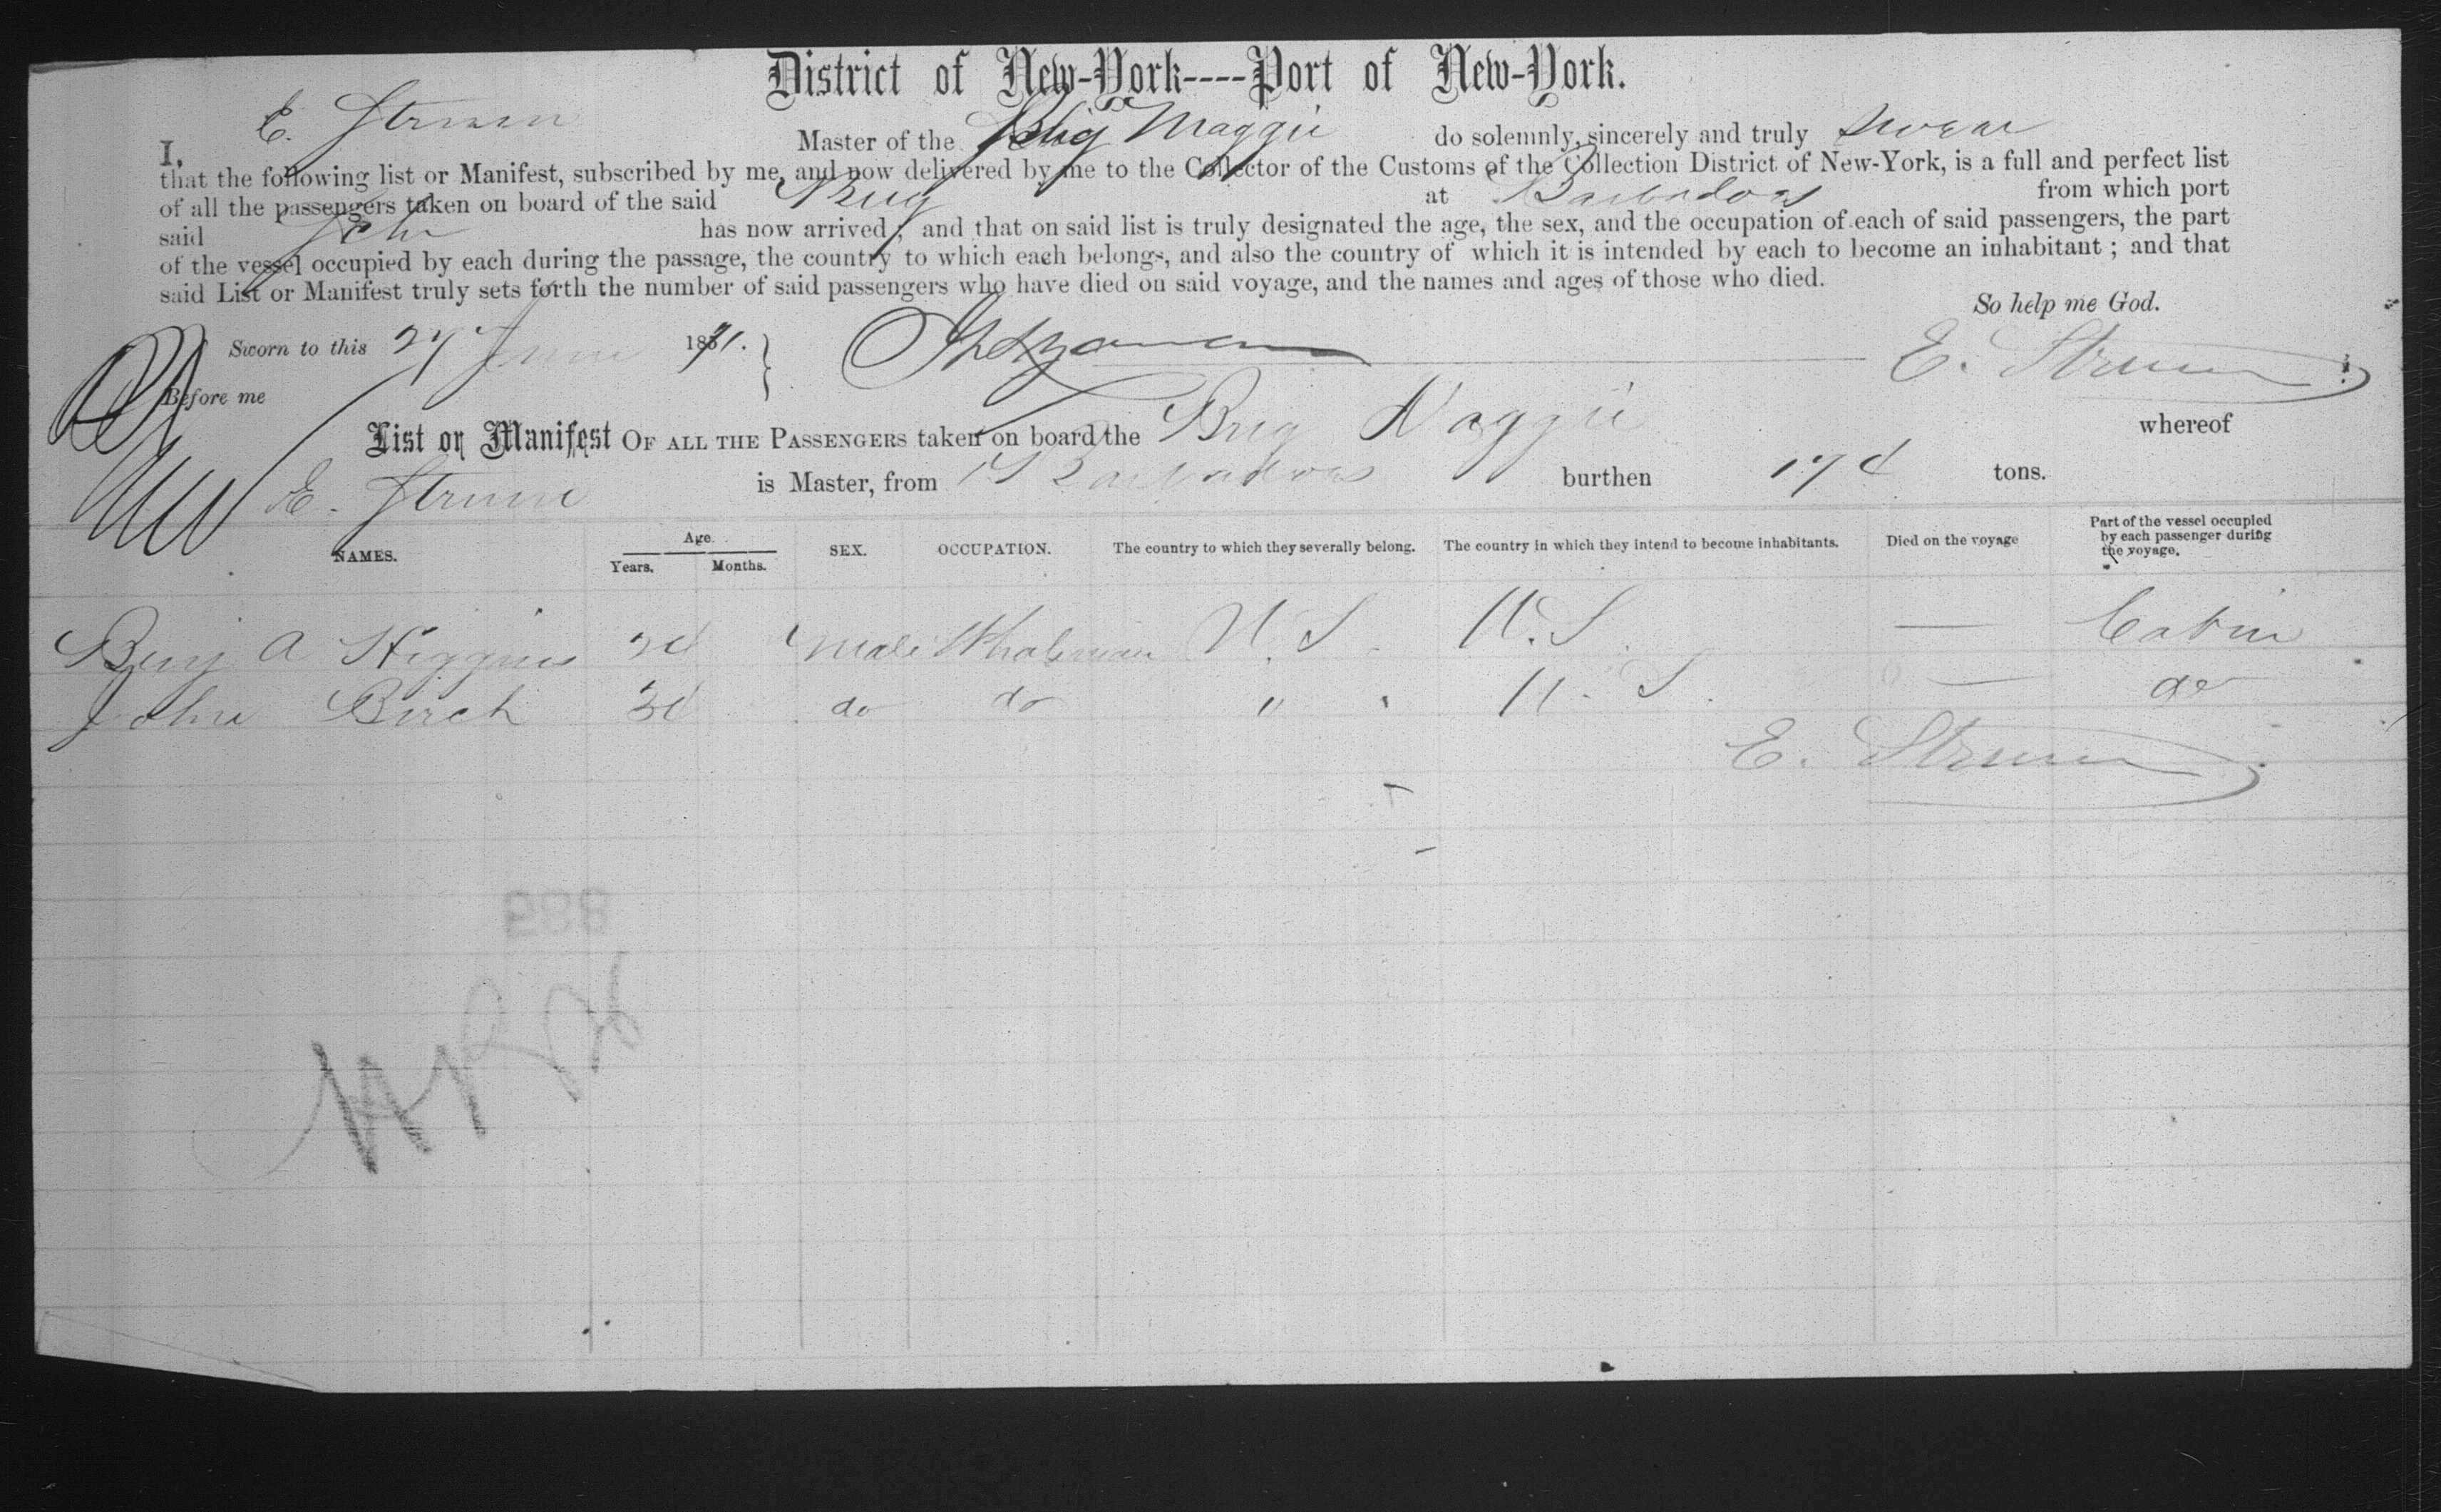 District of New-York----Port of New-York.
I, E. Strum Master of the Brig Maggie do solemnly, sincerely and truly swear
that the following list or Manifest, subscribed by me, and now delivered by me to the Collector of the Customs of the Collection District of New-York, is a full and perfect list
of all the passengers taken on board of the said Brig at Barbadoas from which port
said Schr has now arrived; and that on said list is truly designated the age, the sex, and the occupation of each of said passengers, the part
of the vessel occupied by each during the passage, the country to which each belongs, and also the country of which it is intended by each to become an inhabitant; and that
said List or Manifest truly sets forth the number of said passengers who have died on said voyage, and the names and ages of those who died.
So help me God.
Sworn to this 27 June 1871. E. Strum
Before me
List or Manifest OF ALL THE PASSENGERS taken on board the Brig Maggie whereof
E. Strum is Master, from Barbadoas burthen 174 tons.
NAMES. Age. Years. Months. SEX. OCCUPATION. The country to which they severally belong. The country in which they intend to become inhabitants. Died on the voyage Part of the vessel occupied by each passenger during the voyage.
Benj A Higgins 24 Male Whaleman U.S. U.S. — Cabin
John Birch 34 do do " " U.S. — do
E. Strum